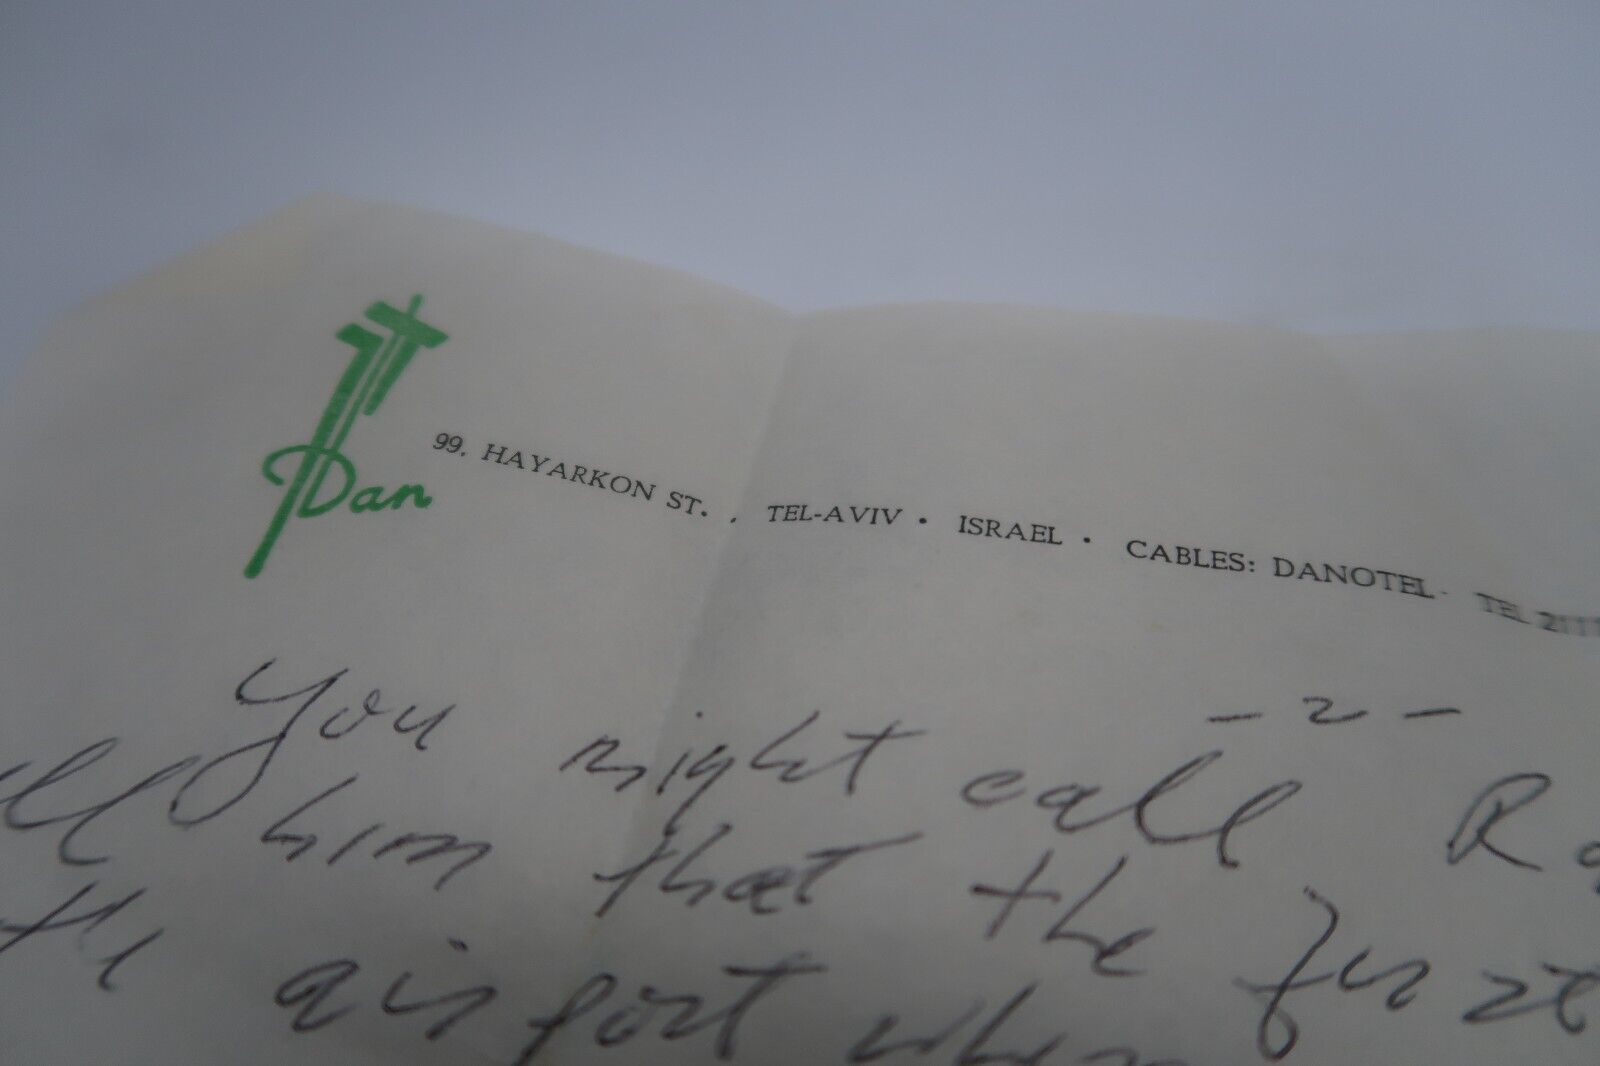 Dan
99, HAYARKON ST. , TEL-AVIV • ISRAEL • CABLES: DANOTEL - TEL 2111
- 2 -
You might call
him that the first
the airport when